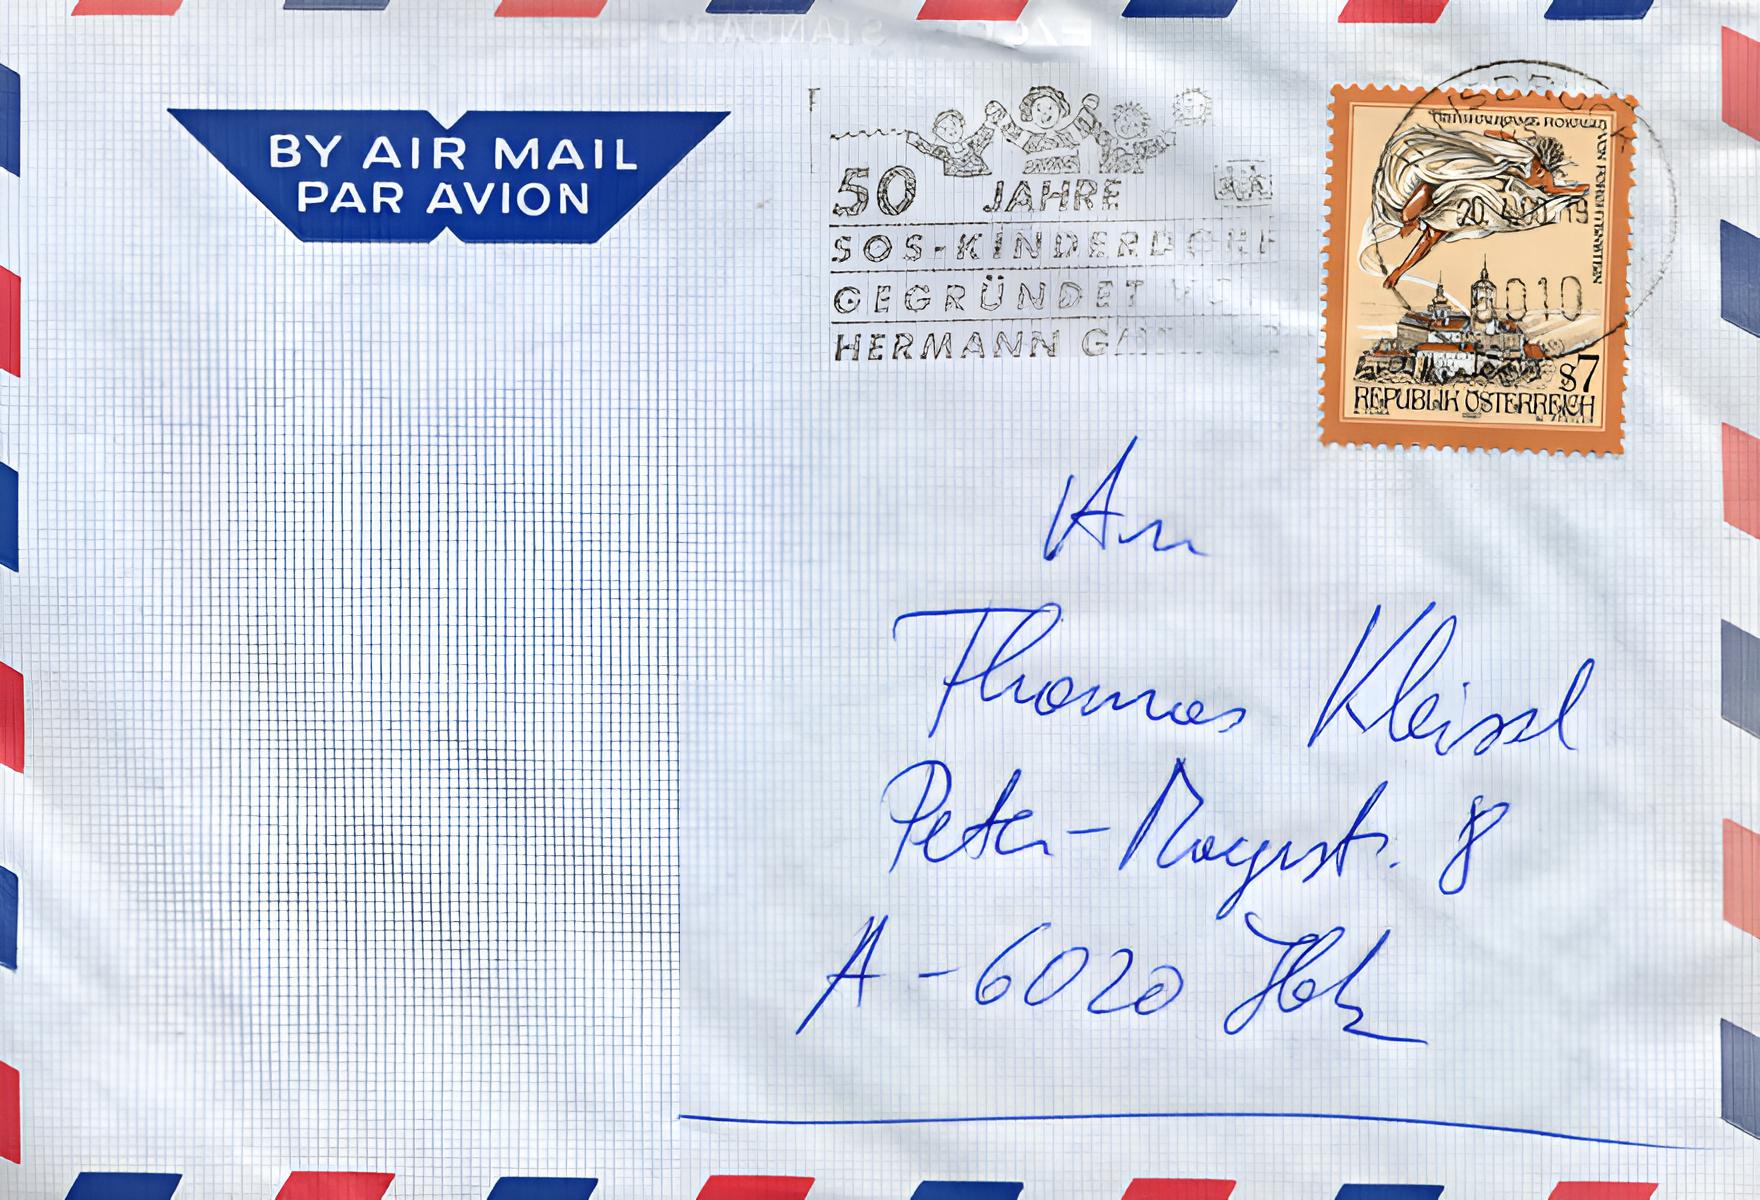 BY AIR MAIL
PAR AVION
50 JAHRE
SOS-KINDERDORF
GEGRÜNDET
HERMANN
20. 4.
6010
S7
REPUBLIK ÖSTERREICH
An
Thomas Kleissl
Peter-Mayrstr. 8
A-6020 Ibk